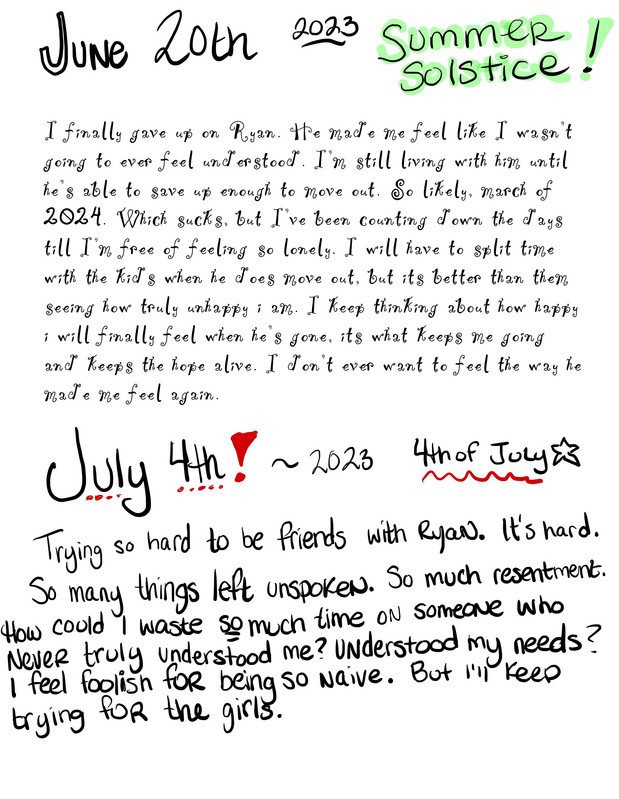 June 20th 2023 Summer
Solstice!
I finally gave up on Ryan. He made me feel like I wasn't
going to ever feel understood. I'm still living with him until
he's able to save up enough to move out. So likely, march of
2024. Which sucks, but I've been counting down the days
till I'm free of feeling so lonely. I will have to split time
with the kids when he does move out, but its better than them
seeing how truly unhappy i am. I keep thinking about how happy
i will finally feel when he's gone, its what keeps me going
and keeps the hope alive. I don't ever want to feel the way he
made me feel again.
July 4th! ~ 2023 4th of July ☆
Trying so hard to be friends with Ryan. It's hard.
So many things left unspoken. So much resentment.
How could I waste so much time on someone who
never truly understood me? Understood my needs?
I feel foolish for being so naive. But I'll keep
trying for the girls.